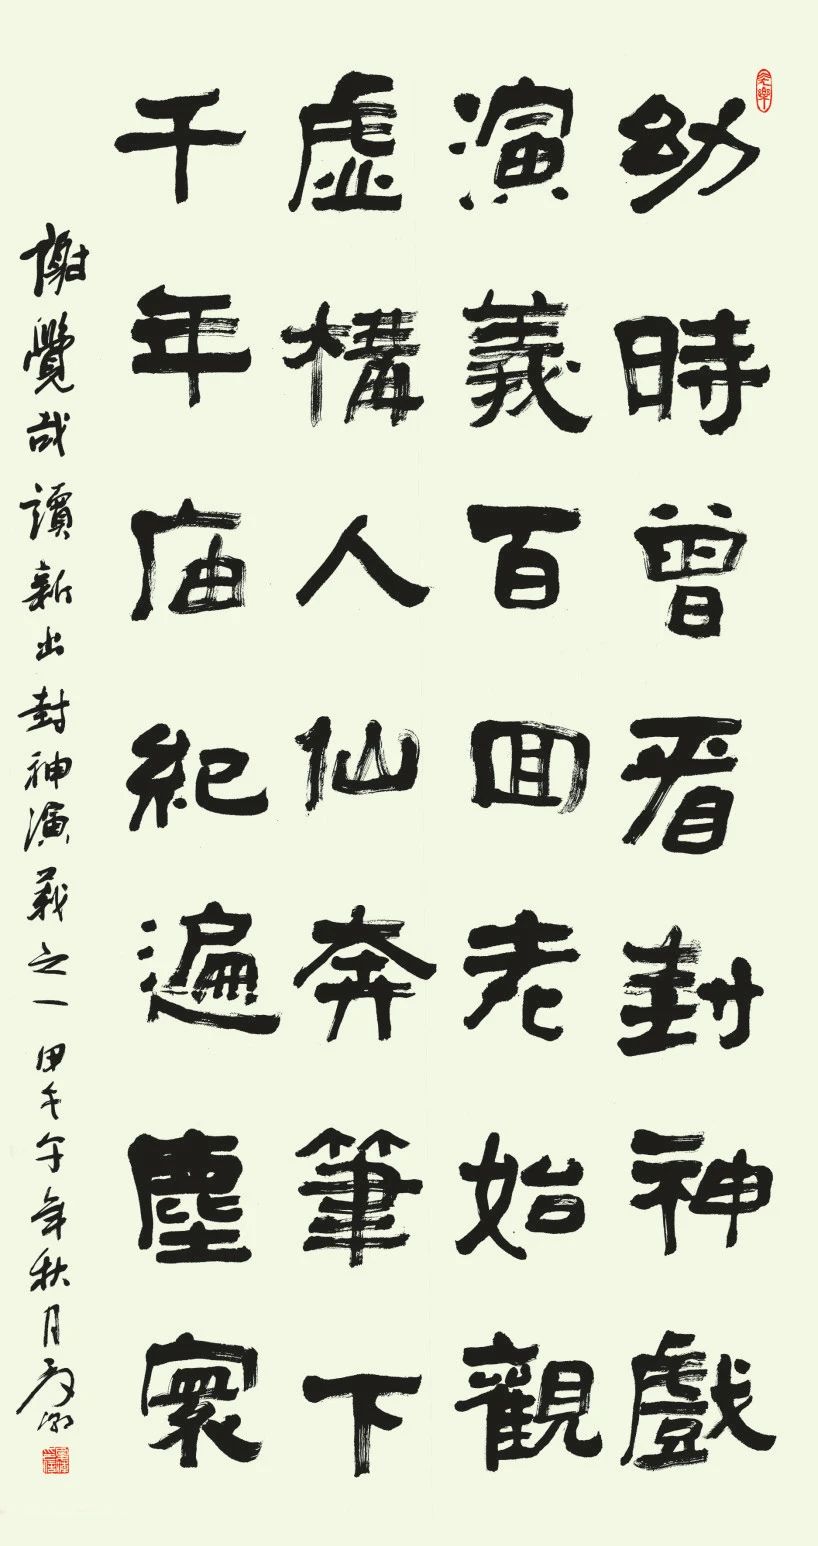 幼時曾看封神戲
演義百回老始觀
虛構人仙奔筆下
千年庙紀遍塵寰
謝覺哉讀新出封神演義之一 甲午年秋月